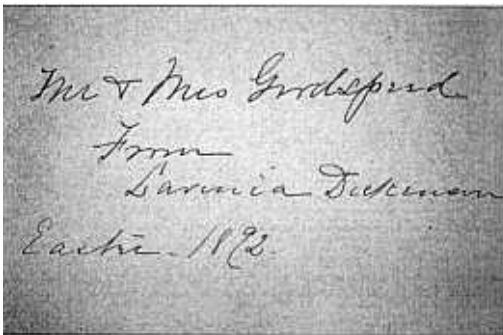 Mr & Mrs Goodspeed
From
Lavinia Dickinson
Easter. 1892.